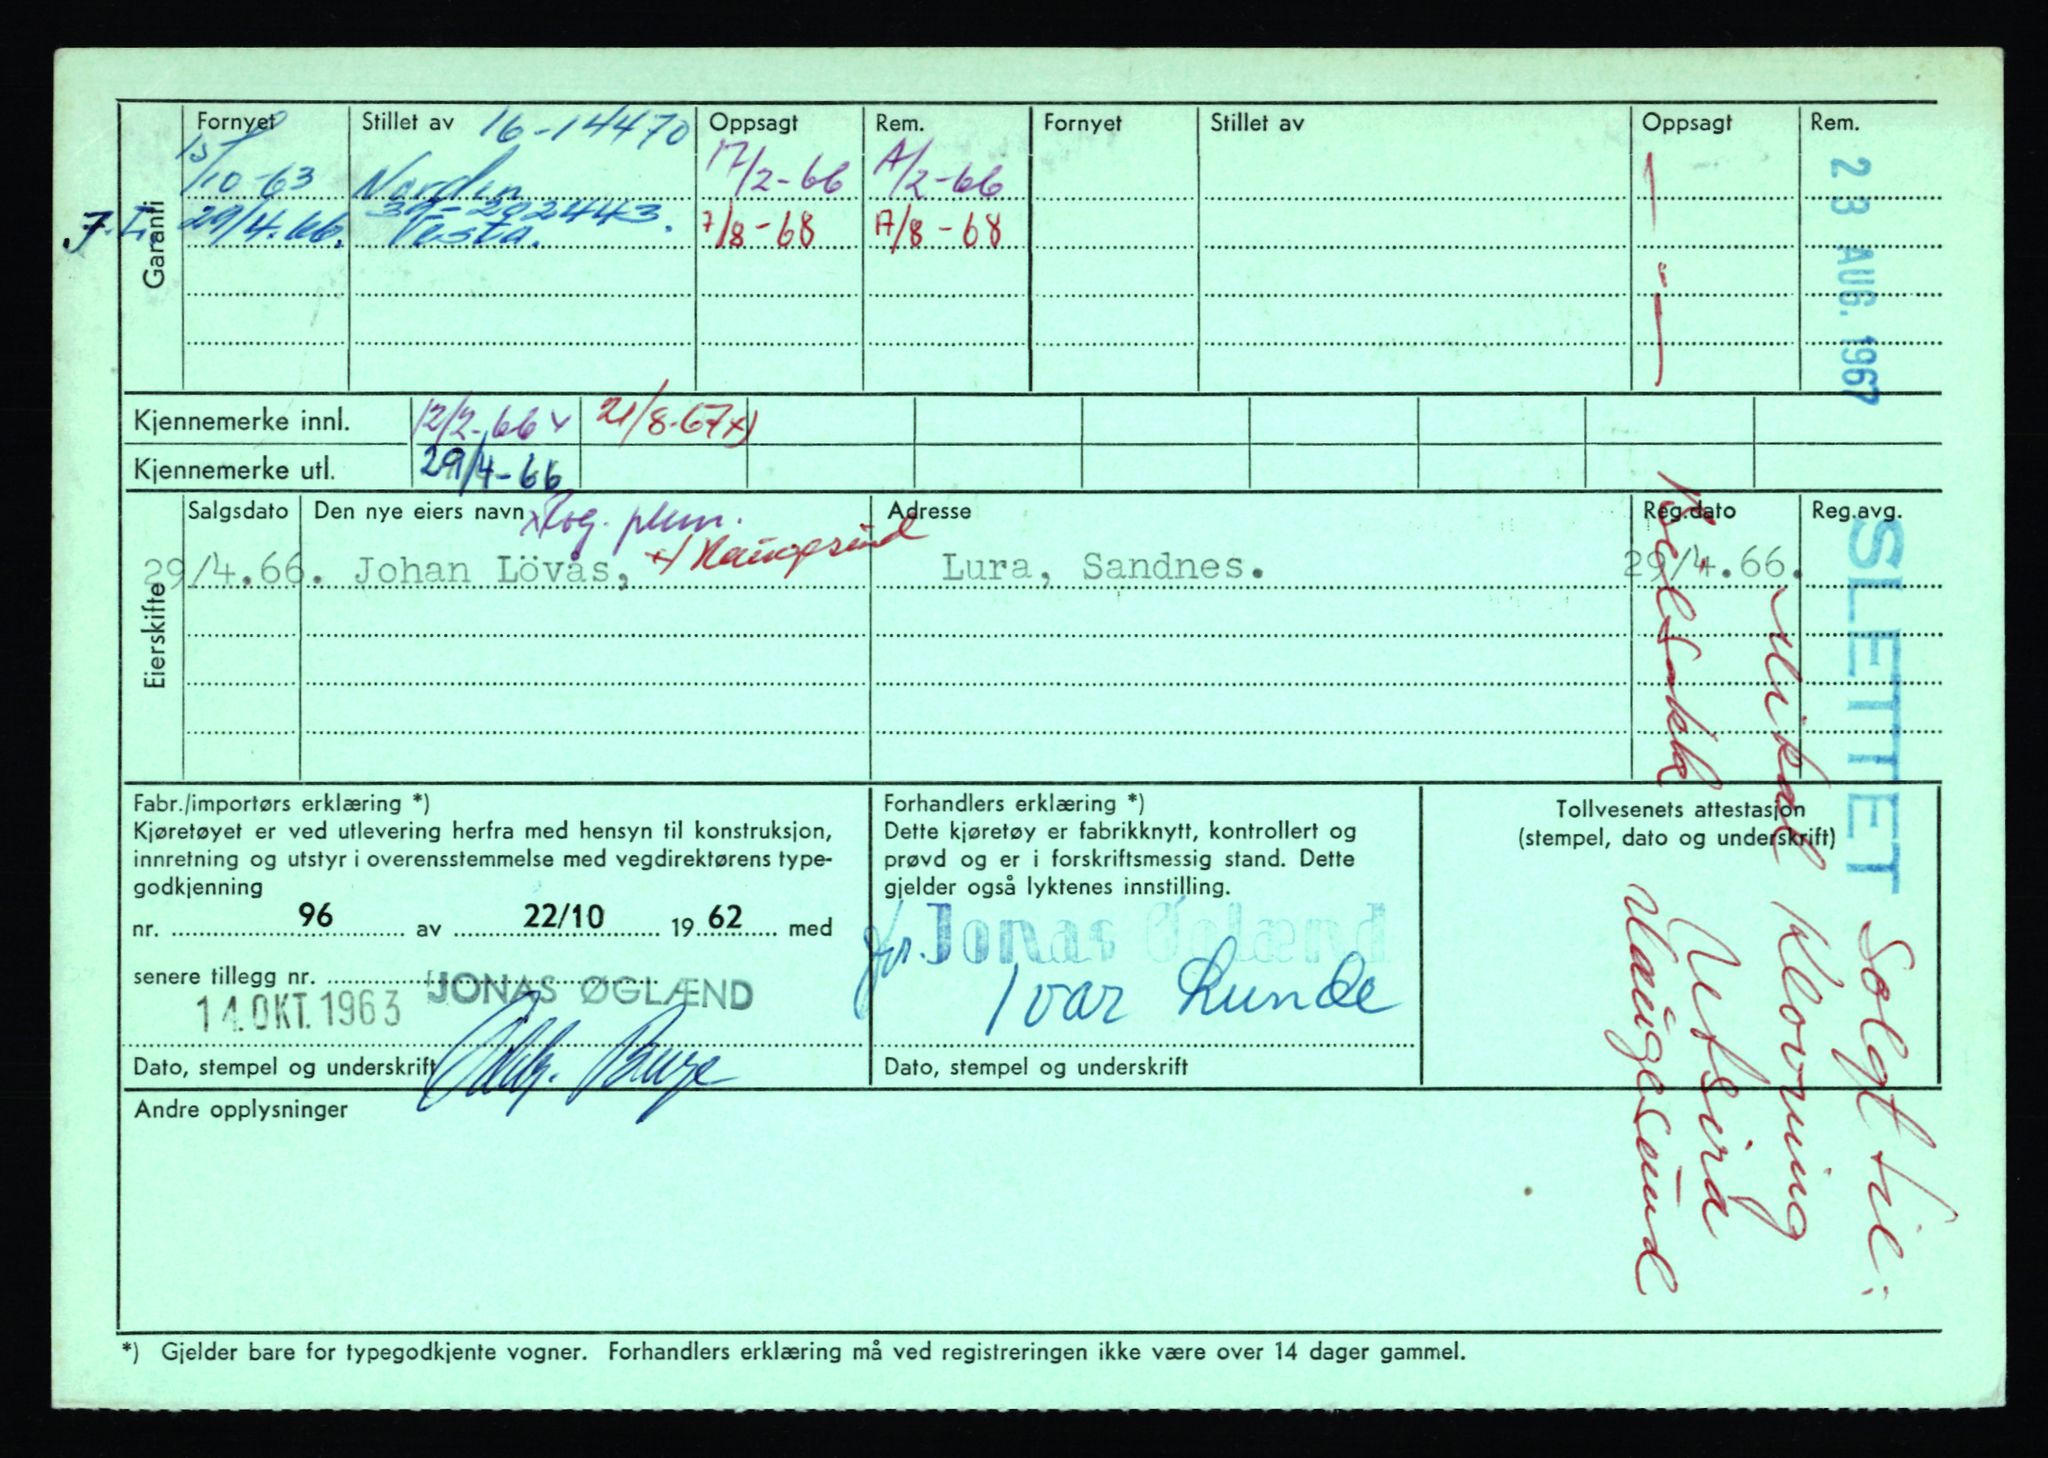 Fornyet Stillet av 16-14470 Oppsagt Rem. Fornyet Stillet av Oppsagt Rem.
Garanti
15/10-63 Norden 17/2-66 A/2-66
29/4.66. Vesta. 7/8-68 A/8-68
Kjennemerke innl. 12/2-66 x 21/8-67 x)
Kjennemerke utl. 29/4-66
Eierskifte
Salgsdato Den nye eiers navn x Rog. Adresse Reg.dato Reg.avg.
x) Haugesund
29/4.66. Johan Lövås, Lura, Sandnes. 29/4.66.
Fabr./importørs erklæring *)
Kjøretøyet er ved utlevering herfra med hensyn til konstruksjon,
innretning og utstyr i overensstemmelse med vegdirektørens type-
godkjenning
nr. 96 av 22/10 1962 med
senere tillegg nr.
14. OKT. 1963 JONAS ØGLÆND
Dato, stempel og underskrift
Forhandlers erklæring *)
Dette kjøretøy er fabrikknytt, kontrollert og
prøvd og er i forskriftsmessig stand. Dette
gjelder også lyktenes innstilling.
for Jonas Øglænd
Ivar Lunde
Dato, stempel og underskrift
Tollvesenets attestasjon
(stempel, dato og underskrift)
Andre opplysninger
23 AUG. 1967
SLETTET
Solgt til:
Mikal Klovning
Utsira
Haugesund
*) Gjelder bare for typegodkjente vogner. Forhandlers erklæring må ved registreringen ikke være over 14 dager gammel.